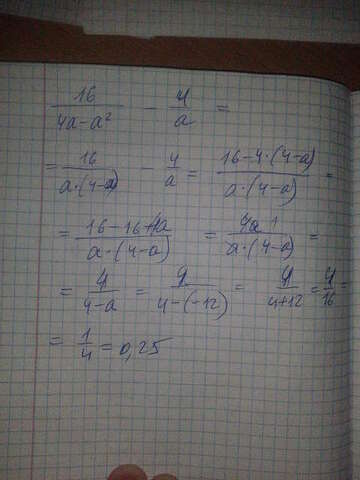 16/(4a-a²) - 4/a =
= 16/(a·(4-a)) - 4/a = (16-4·(4-a))/(a·(4-a)) =
= (16-16+4a)/(a·(4-a)) = 4a/(a·(4-a)) =
= 4/(4-a) = 4/(4-(-12)) = 4/(4+12) = 4/16 =
= 1/4 = 0,25